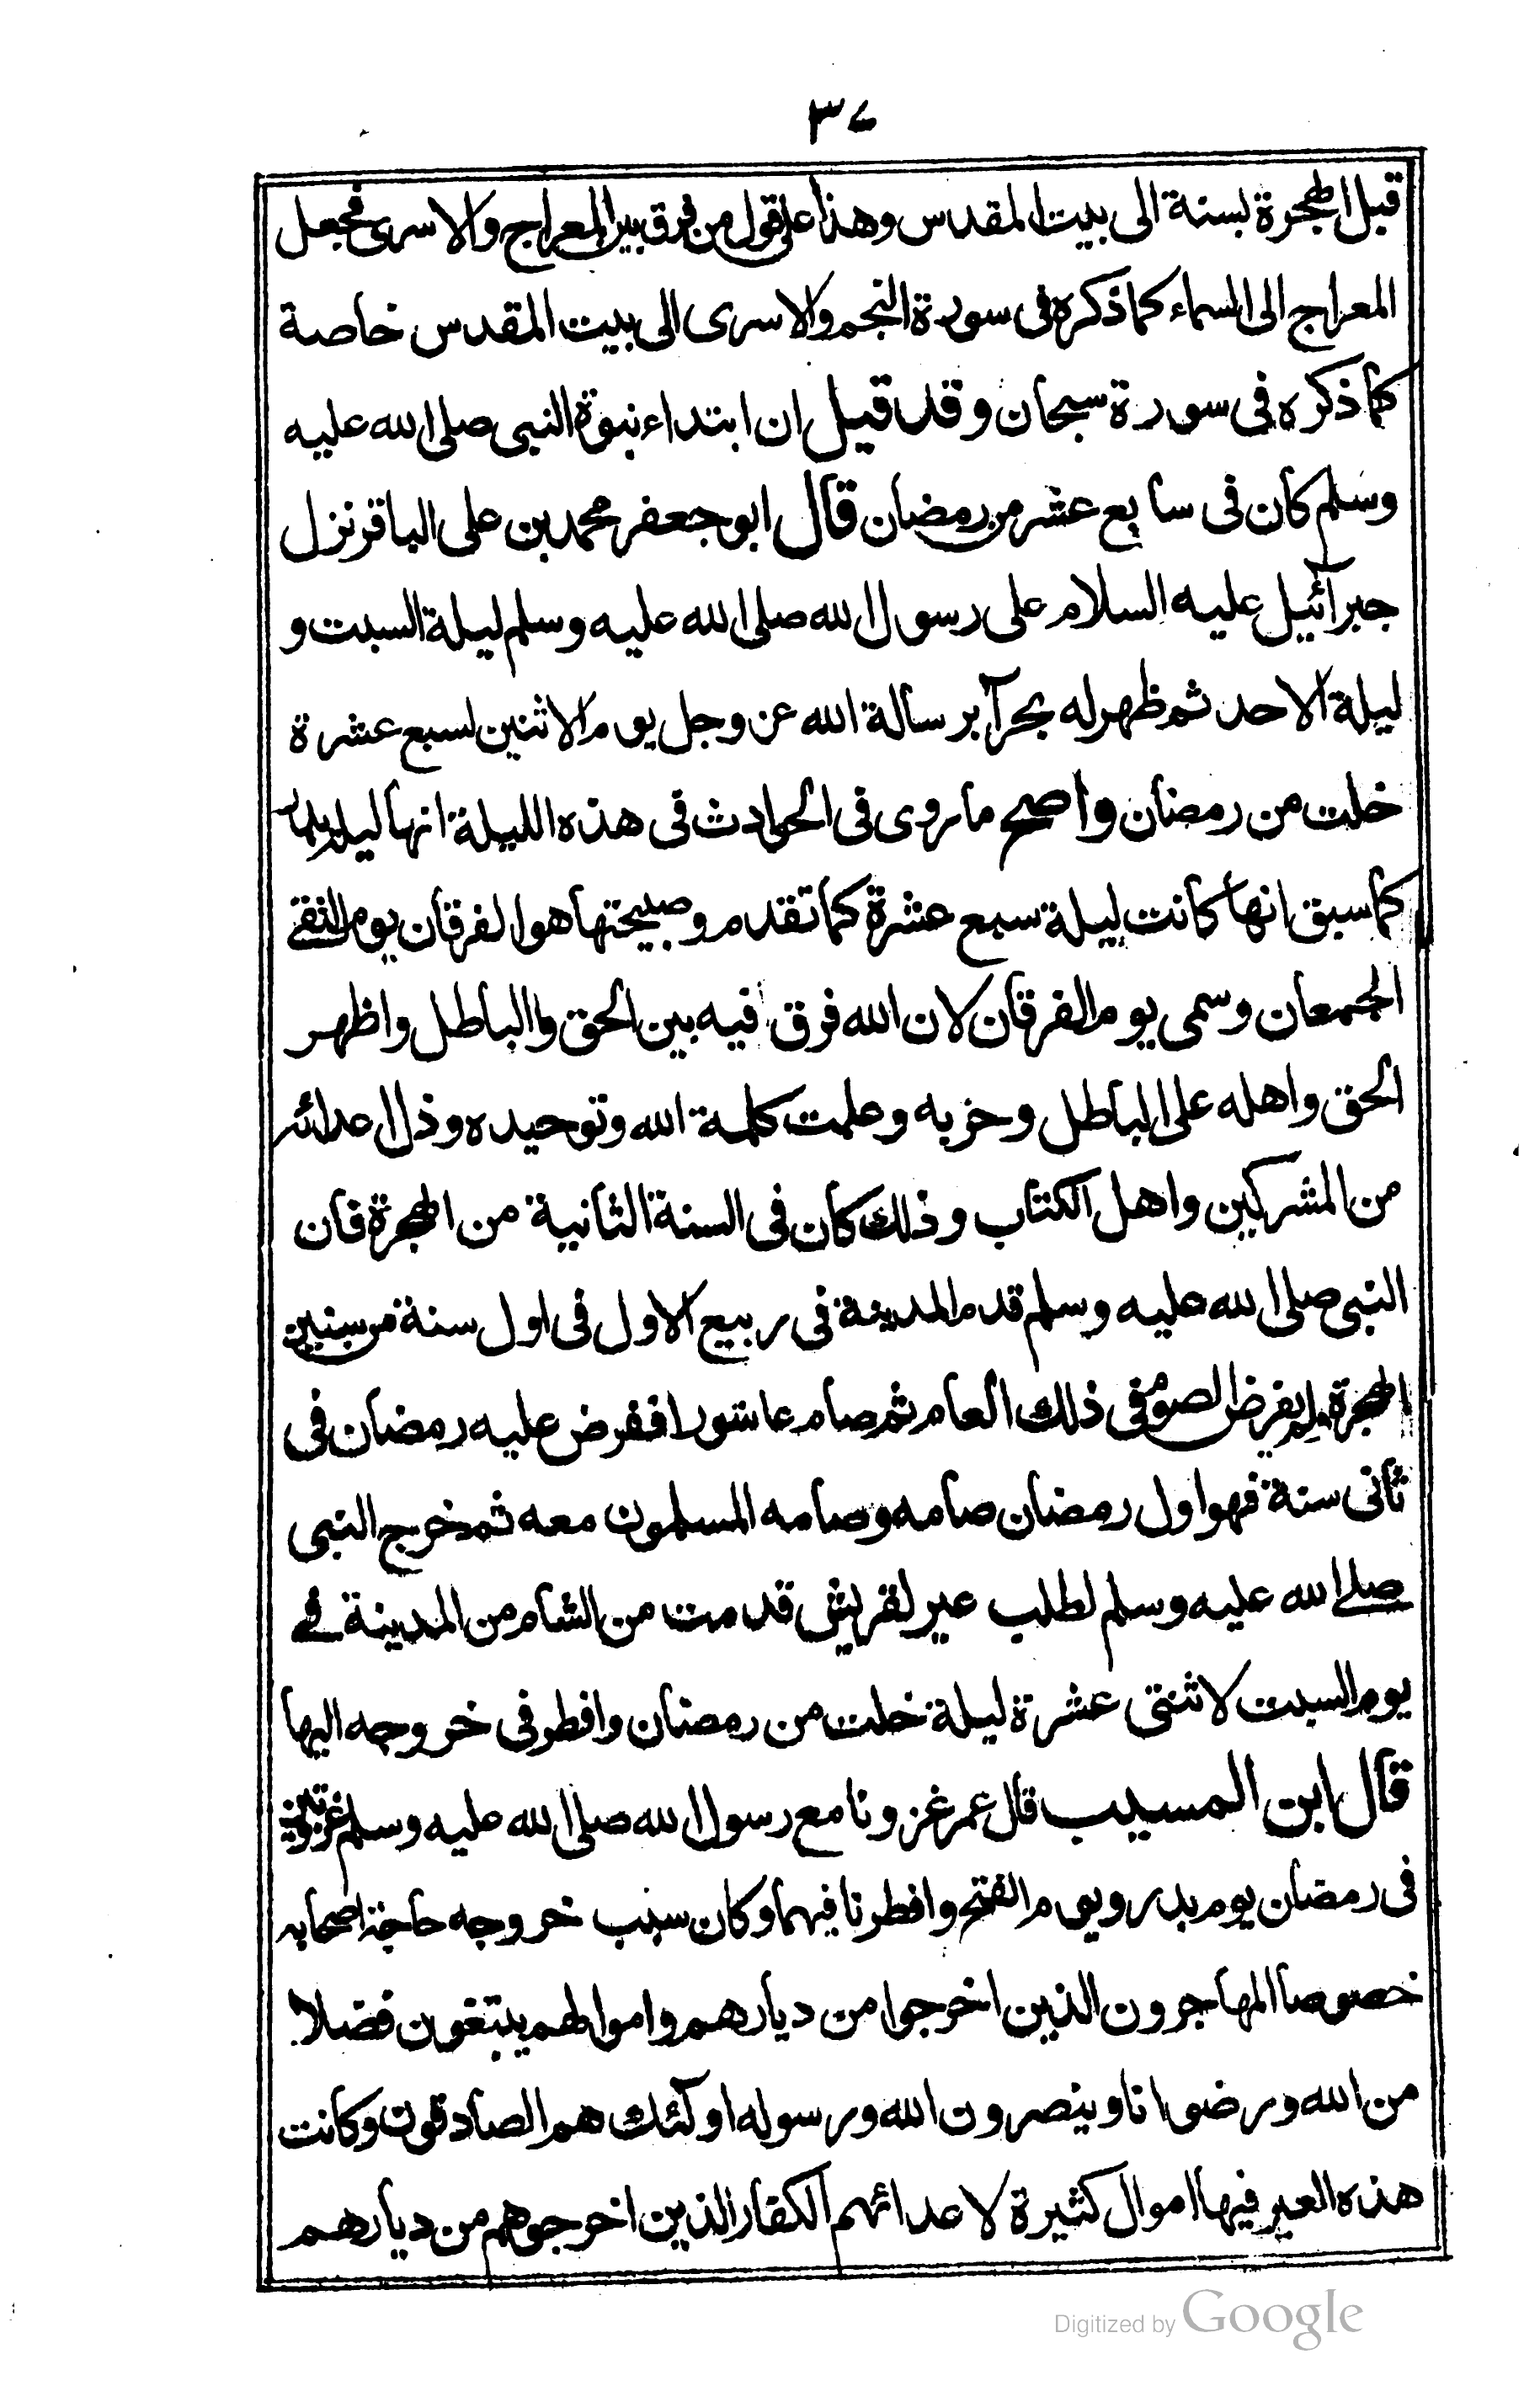 ٣٧
قبل الهجرة بسنة الى بيت المقدس وهذا على قول من فرق بين المعراج والاسرى فجعل
المعراج الى السماء كما ذكره فى سورة النجم والاسرى الى بيت المقدس خاصة
كما ذكره فى سورة سبحان وقد قيل ان ابتداء نبوة النبى صلى الله عليه
وسلم كان فى سابع عشر من رمضان قال ابو جعفر محمد بن على الباقر نزل
جبرآئيل عليه السلام على رسول الله صلى الله عليه وسلم ليلة السبت و
ليلة الاحد ثم ظهر له بحرآ برسالة الله عز وجل يوم الاثنين لسبع عشرة
خلت من رمضان واصح ما روى فى الحوادث فى هذه الليلة انها ليلة بدر
كما سبق انها كانت ليلة سبع عشرة كما تقدم وصبيحتها هو الفرقان يوم التقى
الجمعان وسمى يوم الفرقان لان الله فرق فيه بين الحق والباطل واظهر
الحق واهله على الباطل وحزبه وعلت كلمة الله وتوحيده وذل اعدائه
من المشركين واهل الكتاب وذلك كان فى السنة الثانية من الهجرة فان
النبى صلى الله عليه وسلم قدم المدينة فى ربيع الاول فى اول سنة من سنين
الهجرة ولم يفرض الصوم فى ذلك العام ثم صام عاشورا ففرض عليه رمضان فى
ثانى سنة فهو اول رمضان صامه وصامه المسلمون معه ثم خرج النبى
صلى الله عليه وسلم لطلب عير لقريش قدمت من الشام من المدينة فى
يوم السبت لاثنتى عشرة ليلة خلت من رمضان وافطر فى خروجه اليها
قال ابن المسيب قال عمر غزونا مع رسول الله صلى الله عليه وسلم غزوتين
فى رمضان يوم بدر ويوم الفتح وافطرنا فيهما وكان سبب خروجه حاجة اصحابه
خصوصا المهاجرون الذين اخرجوا من ديارهم واموالهم يبتغون فضلا
من الله ورضوانا وينصرون الله ورسوله اولٓئك هم الصادقون وكانت
هذه العير فيها اموال كثيرة لاعدائهم الكفار الذين اخرجوهم من ديارهم
Digitized by Google